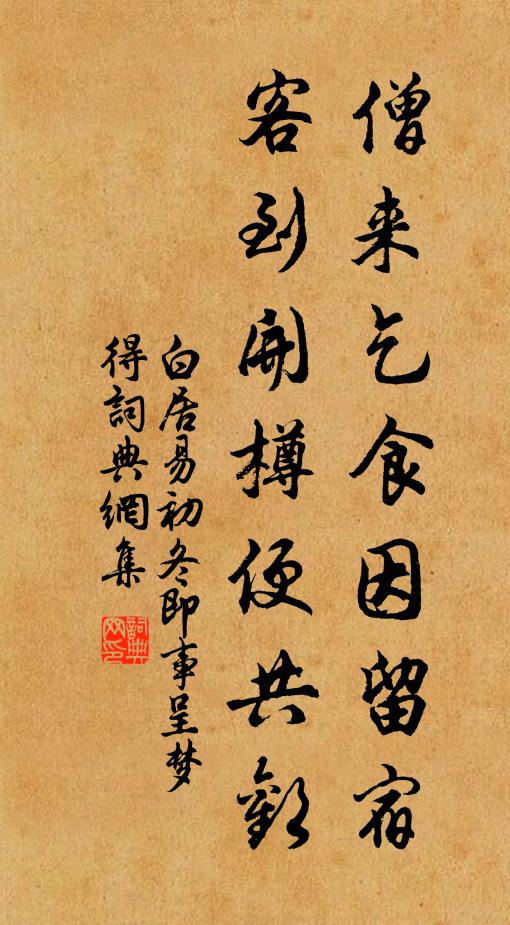 僧来乞食因留宿
客到開樽便共歡
白居易初冬即事呈梦
得詞典網集
詞典
网印